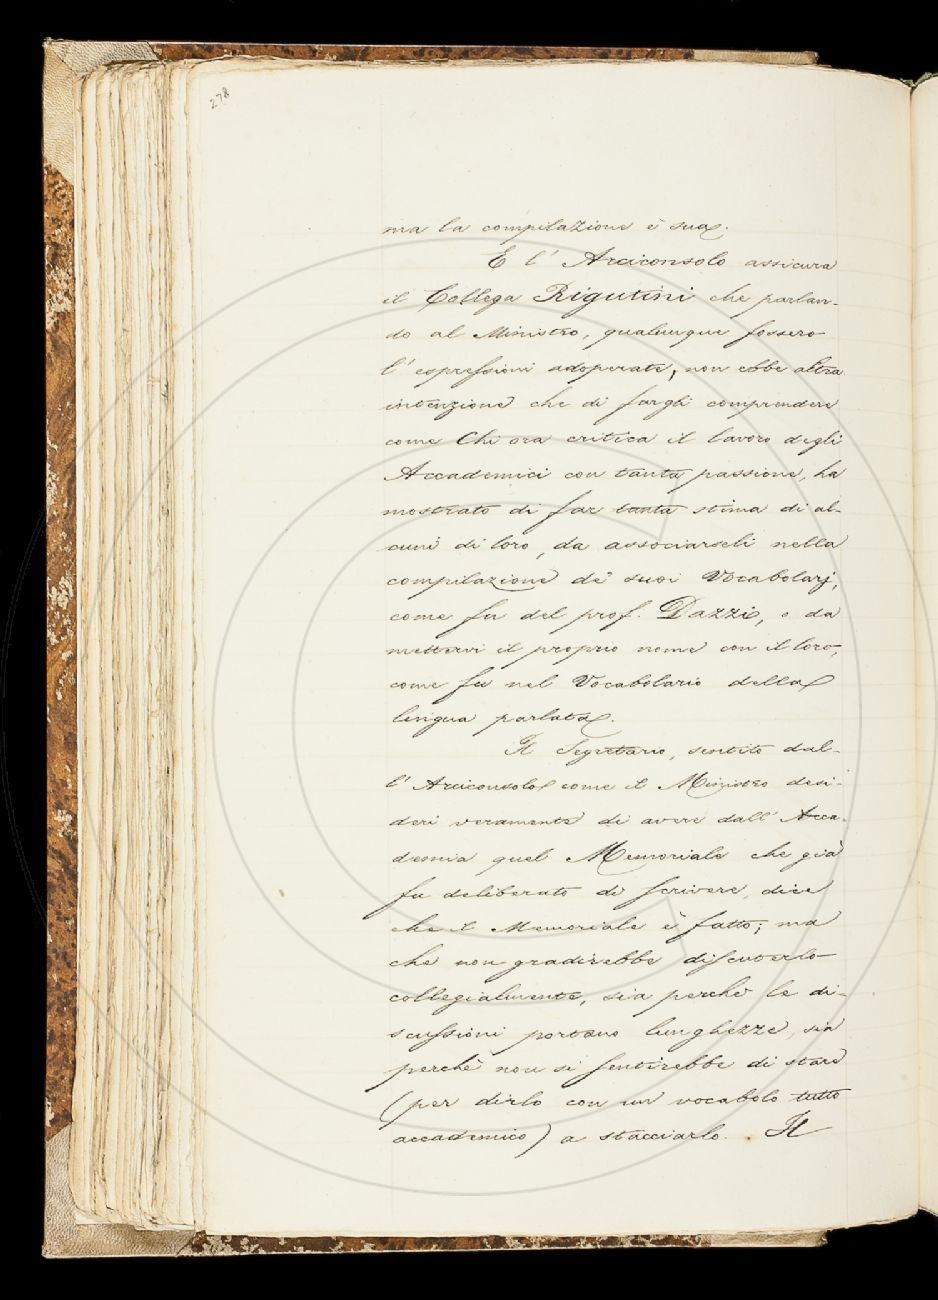 278
ma la compilazione è sua.
E l' Arciconsolo assicura
il Collega Rigutini che parlan-
do al Ministro, qualunque fossero
l' espressioni adoperate, non ebbe altra
intenzione che di fargli comprendere
come Chi ora critica il lavoro degli
Accademici con tanta passione, ha
mostrato di far tanta stima di al-
cuni di loro, da associarseli nella
compilazione de' suoi Vocabolarj,
come fu del prof. Dazzi, o da
mettervi il proprio nome con il loro,
come fu nel Vocabolario della
lingua parlata.
Il Segretario, sentito dal-
l' Arciconsolo come il Ministro desi-
deri veramente di avere dall' Acca-
demia quel Memoriale che già
fu deliberato di scrivere, dice
che il Memoriale è fatto; ma
che non gradirebbe discuterlo
collegialmente, sia perchè le di-
scussioni portano lunghezze, sia
perchè non si sentirebbe di stare
(per dirlo con un vocabolo tutto
accademico) a stacciarlo. Il